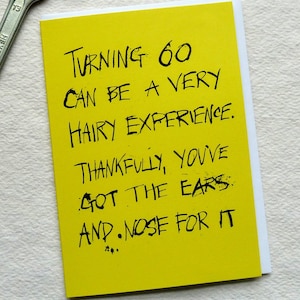 TURNING 60
CAN BE A VERY
HAIRY EXPERIENCE.
THANKFULLY, YOU'VE
GOT THE EARS
AND NOSE FOR IT